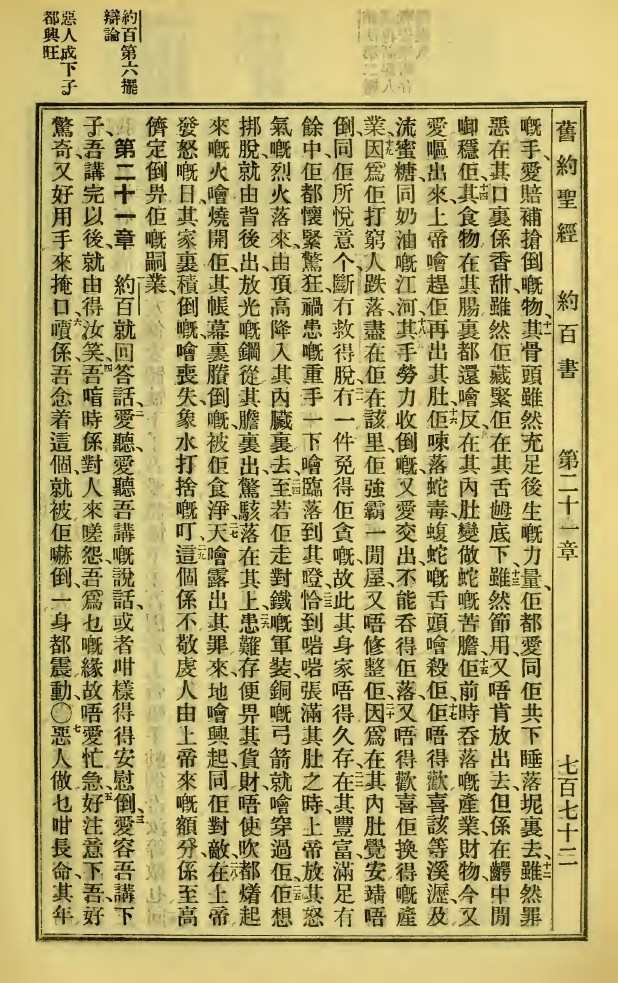 舊約聖經 約百書 第二十一章 七百七十二
嘅手愛賠補搶倒嘅物十一其骨頭雖然充足後生嘅力量佢都愛同佢共下睡落坭裏去十二雖然罪
惡在其口裏係香甜雖然佢藏緊佢在其舌乸底下十三雖然節用又唔肯放出去但係在齶中間
啣穩佢十四其食物在其腸裏都還噲反在其內肚變做蛇嘅苦膽十五佢前時吞落嘅產業財物今又
愛嘔出來上帝噲趕佢再出其肚十六佢㖼落蛇毒蝮蛇嘅舌頭噲殺佢十七佢唔得歡喜該等溪瀝及
流蜜糖同奶油嘅江河十八其手勞力收倒嘅又愛交出不能吞得佢落又唔得歡喜佢換得嘅產
業十九因爲佢打窮人跌落盡在佢在該里佢強霸一間屋又唔修整佢二十因爲在其內肚覺安靖唔
倒同佢所悅意个斷冇救得脫二一冇一件免得佢貪嘅故此其身家唔得久存二二在其豐富滿足有
餘中佢都懷緊驚狂禍患嘅重手一下噲臨落到其噔二三恰到啱啱張滿其肚之時上帝放其怒
氣嘅烈火落來由頂高降入其內臟裏去二四至若佢走對鐵嘅軍裝銅嘅弓箭就噲穿過佢二五佢想
挷脫就由背後出放光嘅鋼從其膽裏出驚駭落在其上二六患難存便畀其貨財唔使吹都㷮起
來嘅火噲燒開佢其帳幕裏賸倒嘅被佢食淨二七天噲露出其罪來地噲興起同佢對敵二八在上帝
發怒嘅日其家裏積倒嘅噲喪失象水打捨嘅叮二九這個係不敬虔人由上帝來嘅額分係至高
儕定倒畀佢嘅嗣業
第二十一章 約百就回答話二愛聽愛聽吾講嘅說話或者咁樣得得安慰倒三愛容吾講下
子吾講完以後就由得汝笑四吾喑時係對人來嗟怨吾爲乜嘅緣故唔愛忙急五好注意下吾好
驚奇又好用手來掩口六嘪係吾念着這個就被佢嚇倒一身都震動〇七惡人做乜咁長命其年
約百第六擺
辯論
惡人成下子
都興旺